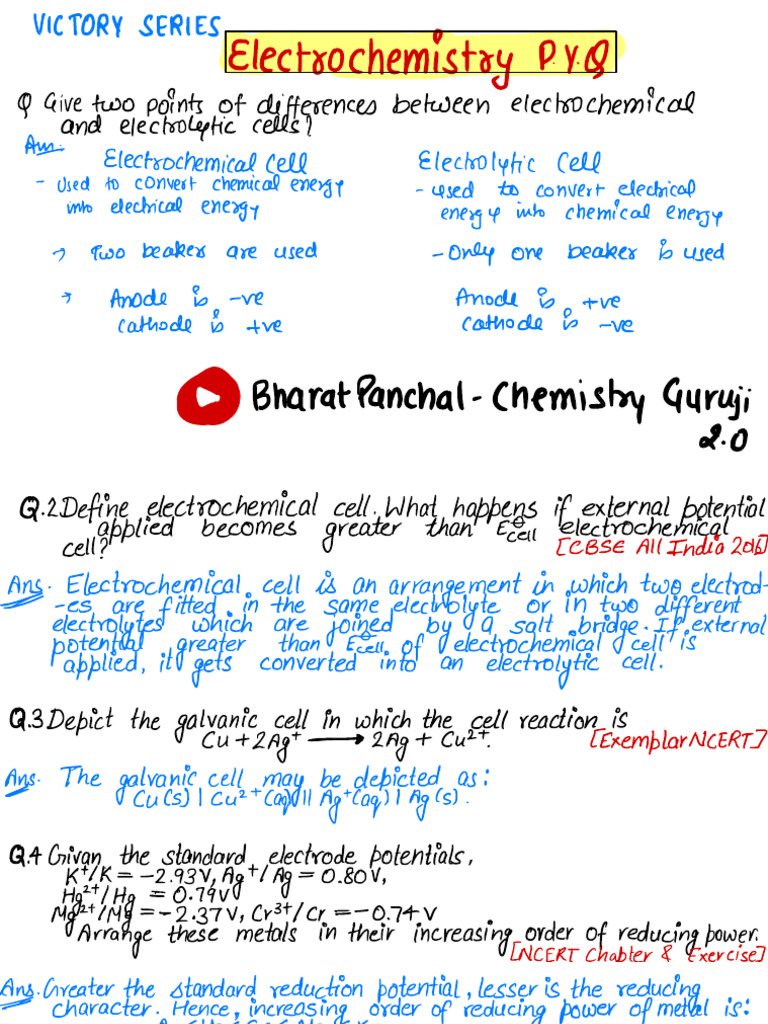 VICTORY SERIES
Electrochemistry P.Y.Q
Q Give two points of differences between electrochemical
and electrolytic cells?
Ans.
Electrochemical Cell
- Used to convert chemical energy
into electrical energy
→ Two beaker are used
→ Anode is -ve
cathode is +ve
Electrolytic Cell
- used to convert electrical
energy into chemical energy
- Only one beaker is used
Anode is +ve
cathode is -ve
Bharat Panchal - Chemistry Guruji
2.0
Q.2 Define electrochemical cell. What happens if external potential
applied becomes greater than E⊖cell electrochemical
cell? [CBSE All India 2016]
Ans. Electrochemical cell is an arrangement in which two electrod-
-es are fitted in the same electrolyte or in two different
electrolytes which are joined by a salt bridge. If external
potential greater than E⊖cell of electrochemical cell is
applied, it gets converted into an electrolytic cell.
Q.3 Depict the galvanic cell in which the cell reaction is
Cu + 2Ag⁺ ⟶ 2Ag + Cu²⁺. [Exemplar NCERT]
Ans. The galvanic cell may be depicted as:
Cu(s) | Cu²⁺(aq) || Ag⁺(aq) | Ag(s).
Q.4 Givan the standard electrode potentials,
K⁺/K = -2.93V, Ag⁺/Ag = 0.80V,
Hg²⁺/Hg = 0.79V
Mg²⁺/Mg = -2.37V, Cr³⁺/Cr = -0.74V
Arrange these metals in their increasing order of reducing power.
[NCERT Chabter & Exercise]
Ans. Greater the standard reduction potential, lesser is the reducing
character. Hence, increasing order of reducing power of metal is: